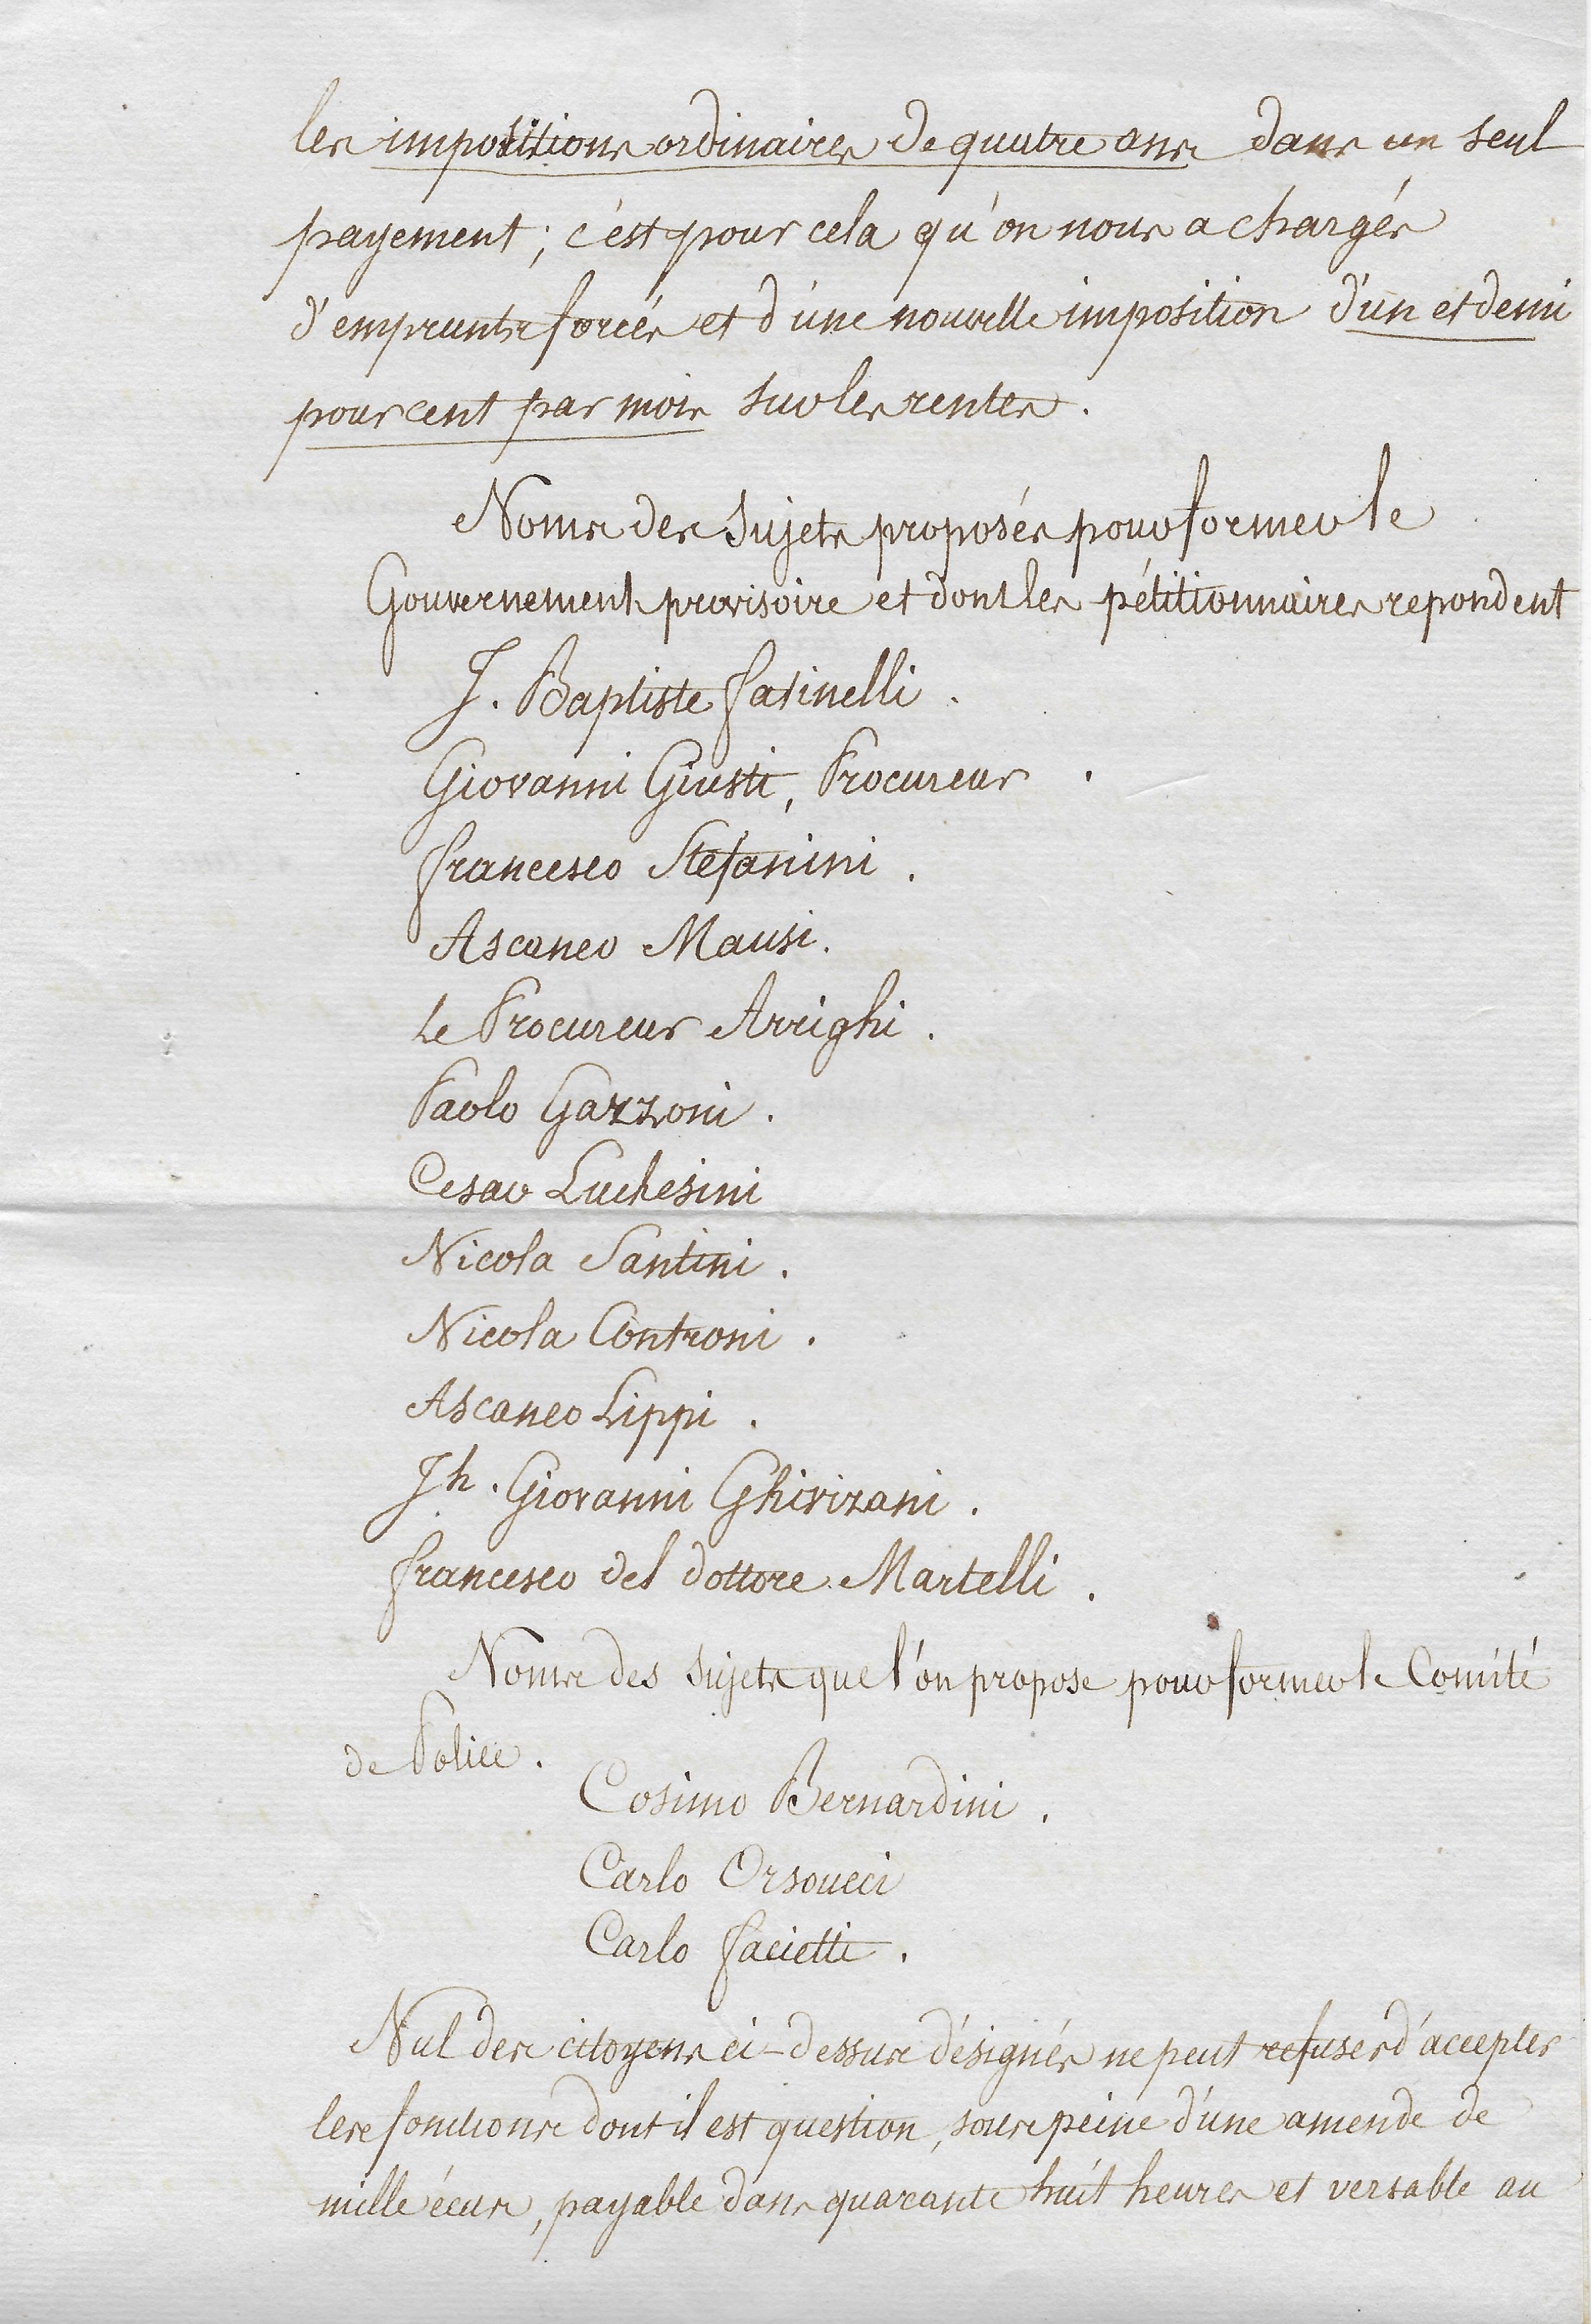 les impositions ordinaires de quatre ans dans un seul
payement ; c'est pour cela qu'on nous a chargés
d'emprunts forcés et d'une nouvelle imposition d'un et demi
pour cent par mois sur les rentes.
Noms des Sujets proposés pour former le
Gouvernement provisoire et dont les pétitionnaires repondent
J. Baptiste Fatinelli.
Giovanni Giusti, Procureur.
Francesco Stefanini.
Ascaneo Mansi.
Le Procureur Arrighi.
Paolo Garzoni.
Cesar Luchesini
Nicola Santini.
Nicola Controni.
Ascaneo Lippi.
Jh. Giovanni Ghivizani.
Francesco del dottore Martelli.
Noms des Sujets que l'on propose pour former le Comité
de Police.
Cosimo Bernardini.
Carlo Orsoucci
Carlo Facietti.
Nul des citoyens ci-dessus désignés ne peut refuser d'accepter
les fonctions dont il est question, sous peine d'une amende de
mille écus, payable dans quarante huit heures et versable au